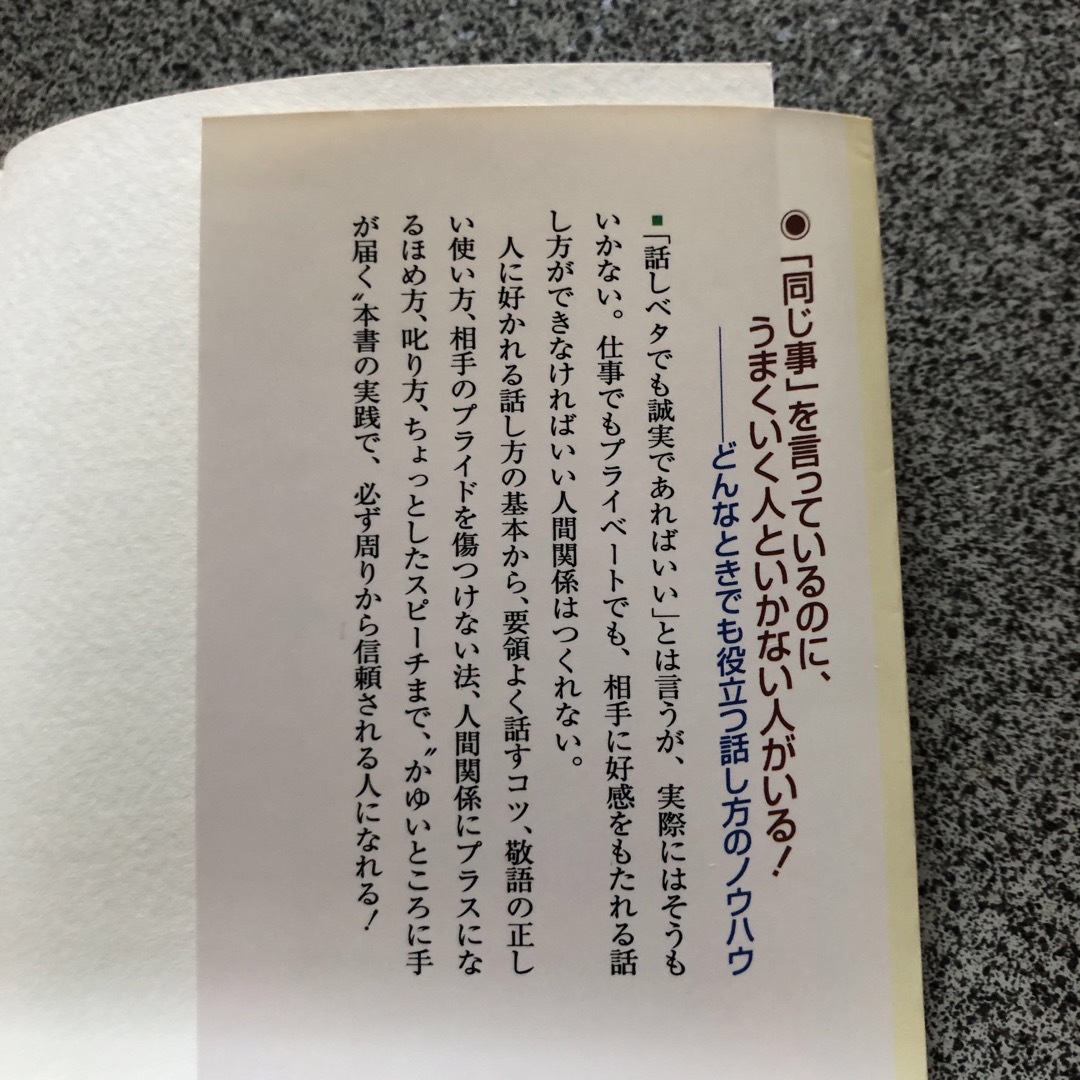 ◉「同じ事」を言っているのに、
うまくいく人といかない人がいる!
──どんなときでも役立つ話し方のノウハウ
■「話しベタでも誠実であればいい」とは言うが、実際にはそうも
いかない。仕事でもプライベートでも、相手に好感をもたれる話
し方ができなければいい人間関係はつくれない。
人に好かれる話し方の基本から、要領よく話すコツ、敬語の正し
い使い方、相手のプライドを傷つけない法、人間関係にプラスにな
るほめ方、叱り方、ちょっとしたスピーチまで、〝かゆいところに手
が届く〟本書の実践で、必ず周りから信頼される人になれる!